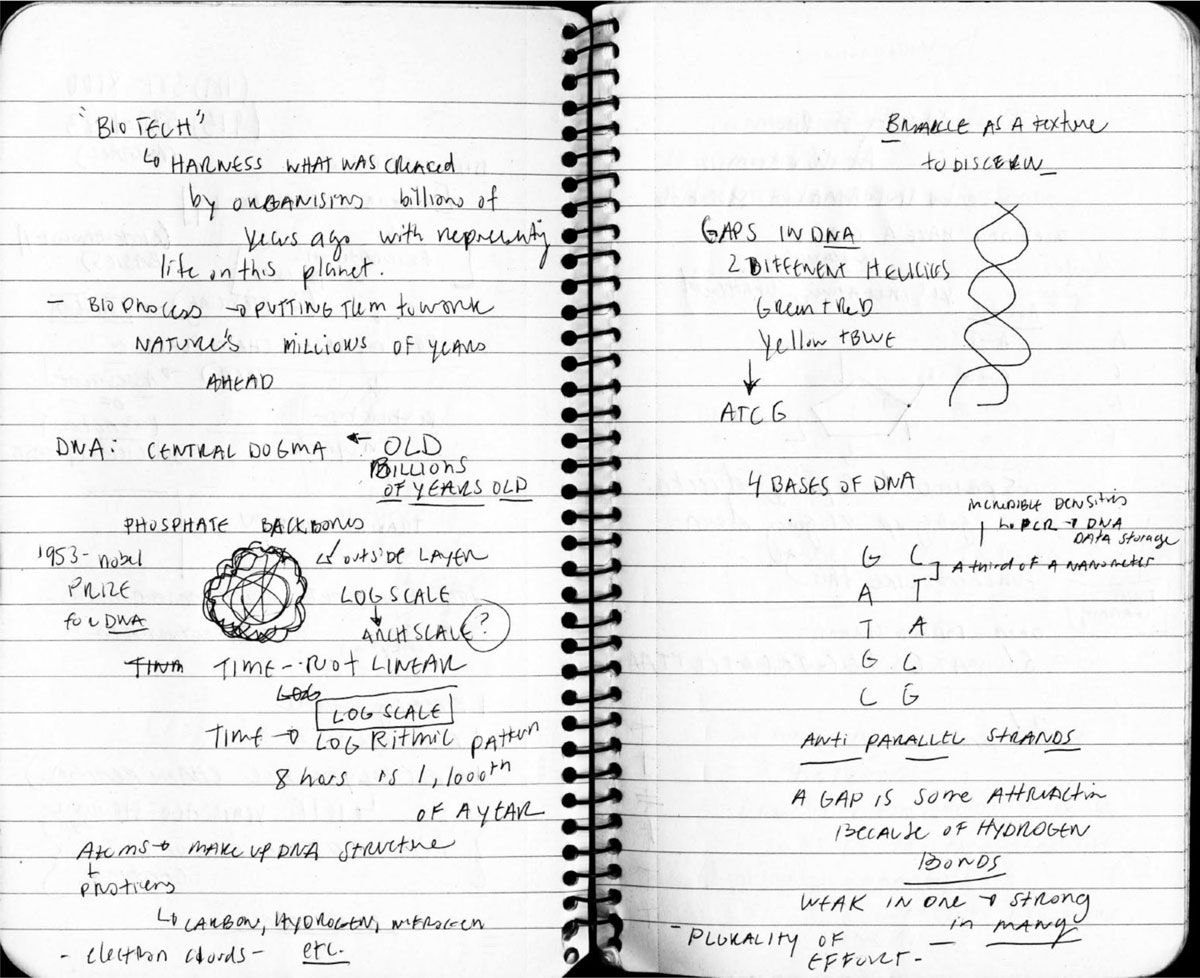 "BIOTECH"
↳ HARNESS WHAT WAS CREACED
by ORGANISINS billions of
years ago with
life on this planet.
- BIO PROCESS → PUTTING THEM to work
NATURE'S MILLIONS OF YEARS
AHEAD
DNA: CENTRAL DOGMA ← OLD
BILLIONS
OF YEARS OLD
PHOSPHATE BACKBONES
1953 - nobel
PRIZE
for DNA
OUTSIDE LAYER
LOG SCALE
ARCH SCALE?
TIME -- NOT LINEAR
LOG
LOG SCALE
TIME → LOG RITMIC pattern
8 hours is 1, 1000th
OF A YEAR
Atoms → MAKE UP DNA STRUCTURE
↳ CARBON, HYDROGEN, NITROGEN
- electron - etc.
BRAILLE AS A texture
to DISCERN
GAPS IN DNA
2 DIFFERENT HELICIES
GREEN + RED
Yellow + BLUE
↓
ATCG
4 BASES OF DNA
INCREDIBLE DENSITIES
↳ PCR → DNA
DATA Storage
G C
A third of A NANOMETER
A T
T A
G C
C G
ANTI PARALLEL STRANDS
A GAP IS some ATTRACTION
BECAUSE OF HYDROGEN
BONDS
WEAK IN ONE → STRONG
in MANY
- PLURALITY OF
EFFORT -